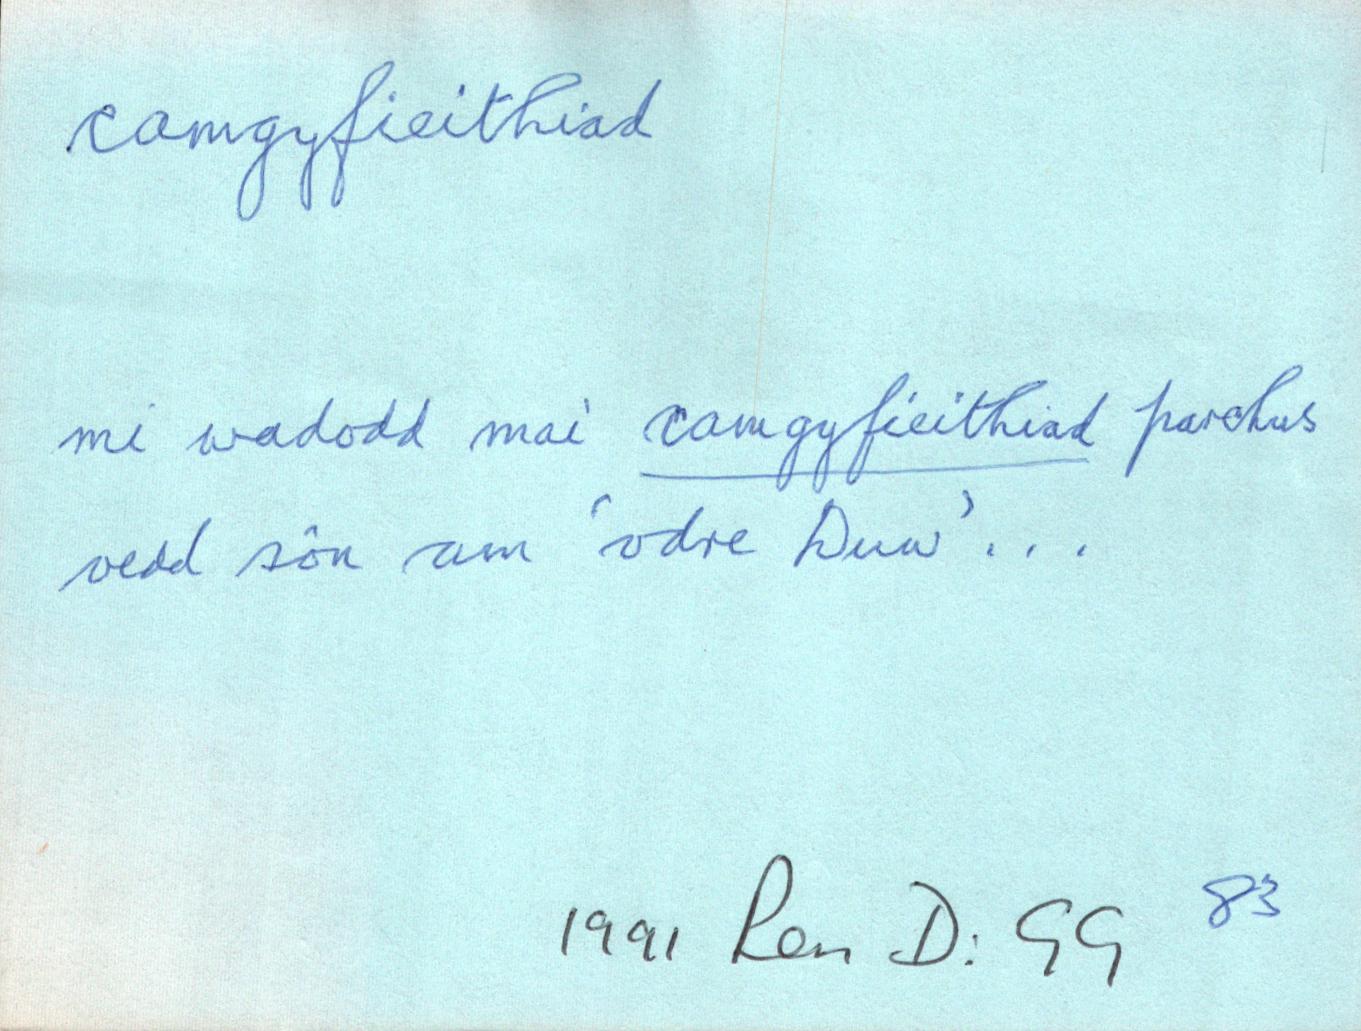 camgyfieithiad
mi wadodd mai camgyfieithiad parchus
oedd sôn am 'odre Duw'...
1991 Ren D: GG 83